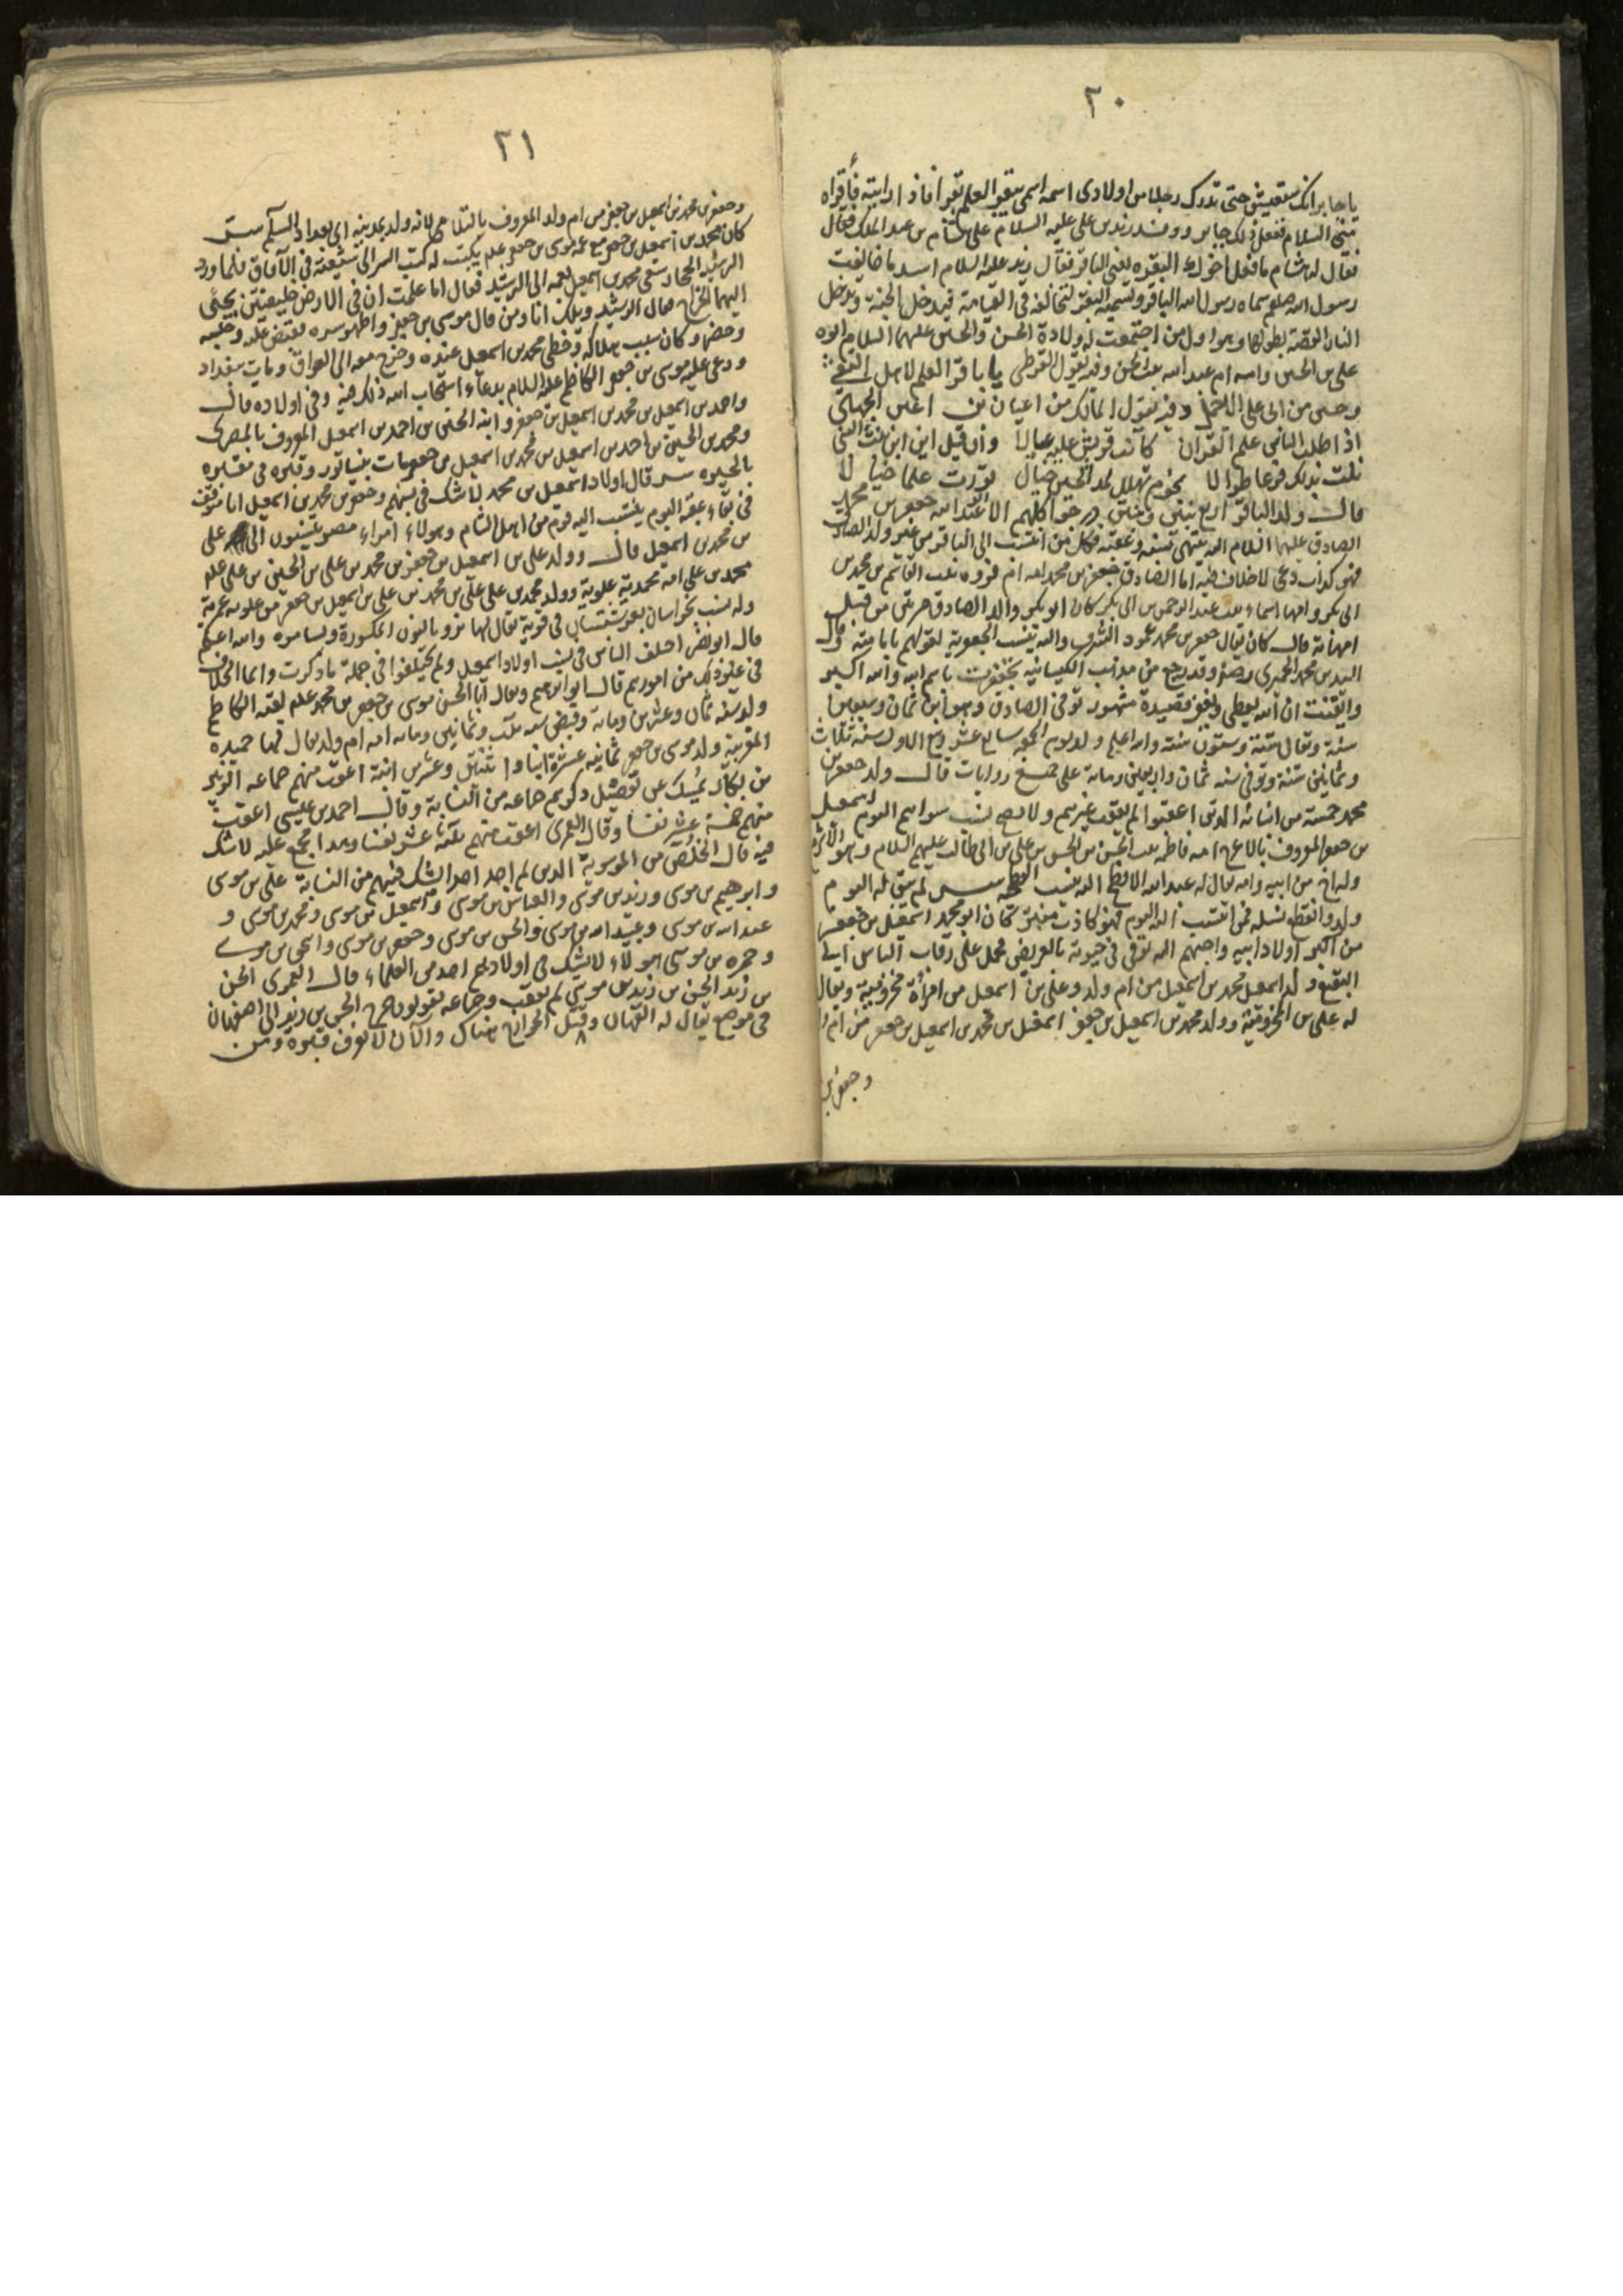 ٢٠
يا جابر انك ستعيش حتى تدرك رجلا من اولادى اسمه اسمى يبقر العلم بقرا فاذا رايته فأقراه
منى السلام ففعل ذلك جابر ووفد زيد بن على عليه السلام على هشام بن عبد الملك فقال
فقال له هشام ما فعل اخوك البقره يعنى الباقر فقال زيد عليه السلام لشد ما خالفت
رسول الله صلعم سماه رسول الله الباقر وتسميه البقر لتخالفه فى القيامة فيدخل الجنة وتدخل
النار القصة بطولها وهو اول من اجتمعت له ولادة الحسن والحسين عليهما السلام ابوه
على بن الحسين وامه ام عبد الله بنت الحسن وفيه يقول القرظى يا باقر العلم لاهل التقى
وخير من لبى على الاجبل وفيه يقول المالك بن اعين الجهنى
اذا طلب الناس علم القران كانت قريش عليه عيالا وان قيل اين ابن بنت النبى
نلت بذلك فرعا طوالا نجوم تهلل للمدلجين جبال تورث علما جبالا
قال ولد الباقر اربع بنين وبنتين درجوا كلهم الا ابو عبد الله جعفر بن محمد
الصادق عليهما السلام اليه ينتهى نسبه وعقبه فكل من انتسب الى الباقر من غير ولد الصادق
فهو كذاب دعى لا خلاف فيه اما الصادق جعفر بن محمد امه ام فروه بنت القاسم بن محمد بن
ابى بكر وامها اسماء بنت عبد الرحمن بن ابى بكر كان ابو بكر والد الصادق مرتين من قبل
امهاته قال كان يقال جعفر بن محمد عمود الشرف واليه تنسب الجعفرية لقولهم بامامته وقال
السيد بن محمد الحميرى رحمه وقد رجع من مذهب الكيسانيه تجعفرت باسم الله والله اكبر
وايقنت ان الله يعطى ويغفر قصيدة مشهور توفى الصادق وهو ابن ثمان وسبعين
سنة ويقال ستة وستون سنة والله اعلم ولد يوم الجمعه سابع عشر ربيع الاول سنه ثلاث
وثمانين سنة وتوفى سنه ثمان واربعين ومائة على جميع روايات قال ولد جعفر بن
محمد خمسة من ابنائه الذين اعقبوا لم يعقب غيرهم ولا يصح نسب سواهم اليوم اسمعيل
بن جعفر المعروف بالاعرج امه فاطمه بنت الحسين بن الحسن بن على بن ابى طالب عليهم السلام وهو الاكبر
وله اخ من ابيه وامه يقال له عبد الله الافطح اليه ينسب الفطحيه لم يبق له اليوم
ولد وانقطع نسله فمن انتسب اليه اليوم فهو كاذب مفتر كان ابو محمد اسمعيل بن جعفر
من اكبر اولاد ابيه واحبهم اليه توفى فى حيوته بالعريض فحمل على رقاب الناس الى
البقيع ولد اسمعيل محمد بن اسمعيل من ام ولد وعلى بن اسمعيل من امرأة مخزومية ويقال
له على بن المخزومية وولد محمد بن اسمعيل بن جعفر اسمعيل بن محمد بن اسمعيل بن جعفر من ام ولد
وجعفر بن
٢١
وجعفر بن محمد بن اسمعيل بن جعفر من ام ولد المعروف بالسلامى لانه ولد بمدينه اى بغداد السلم
كان محمد بن اسمعيل بن جعفر مع عمه موسى بن جعفر علم يكتب له كتب السر الى شيعته فى الآفاق فلما ورد
الرشيد الحجاز سعى محمد بن اسمعيل بعمه الى الرشيد فقال اما علمت ان فى الارض خليفتين يجبى
اليهما الخراج فقال الرشيد ويلك انا ومن قال موسى بن جعفر واظهر سره فقبض عليه وحبسه
وكان سبب هلاكه وحظى محمد بن اسمعيل عنده وخرج معه الى العراق ومات ببغداد
ودعى عليه موسى بن جعفر الكاظم عليه السلام بدعاء استجاب الله ذلك فيه وفى اولاده قال
واحمد بن اسمعيل بن محمد بن اسمعيل بن جعفر وابنه الحسين بن احمد بن اسمعيل المعروف بالمصرى
ومحمد بن الحسين بن احمد بن اسمعيل بن محمد بن اسمعيل بن جعفر مات بنيسابور وقبره فى مقبره
بالحيره قال اولاد اسمعيل بن محمد لا شك فى نسبهم وجعفر بن محمد بن اسمعيل انا متوقف
فى بقاء عقبه اليوم ينتسب اليه قوم من اهل الشام وهولاء امراء مصر ينتسبون الى على
بن محمد بن اسمعيل قال وولد على بن اسمعيل بن جعفر بن محمد بن على بن الحسين بن على علم
محمد بن على امه محمدية علوية وولد محمد بن على على بن محمد بن على بن اسمعيل بن جعفر من علويه عمرية
وله نسب بخراسان فى قرية يقال لها نزو بالنون المكسورة وسامره والله اعلم
قال ابو نصر اختلف الناس فى نسب اولاد اسمعيل ولم يختلفوا فى جملة ما ذكرت وانما الخلاف
فى غير ذلك من امورهم قال ابو ابرهيم ويقال ابا الحسن موسى بن جعفر بن محمد علم لقبه الكاظم
ولد سنه ثمان وعشرين ومائة وقبض سنه ثلث وثمانين ومائه امه ام ولد يقال لها حميده
المغربية ولد موسى بن جعفر ثمانيه عشرة ابنا واثنتين وعشرين ابنة اعقب منهم جماعه الزبير
بن بكار يمسك عن تفصيل ذكرهم جماعه من النسابة وقال احمد بن عيسى اعقب
منهم خمسة عشر نفسا وقال العمرى اعقب منهم ثلثة عشر نفسا وهذا اجمع عليه لا شك
فيه قال الخلص من الموسوية الذين لم اجد احدا شك فيهم من النسابة على بن موسى
وابرهيم بن موسى وزيد بن موسى والعباس بن موسى واسمعيل بن موسى ومحمد بن موسى و
عبد الله بن موسى وعبيد الله بن موسى والحسن بن موسى وجعفر بن موسى واسحق بن موسى
وحمزه بن موسى هولاء لا يشك فى اولادهم احد من العلماء قال العمرى الحسن
بن زيد الحسن بن زيد بن موسى لم يعقب وجماعه يقولون خرج الحسن بن زيد الى اصفهان
فى موضع يقال له القهبان وقيل الخوارج هناك والآن لا يعرف قبره ومن